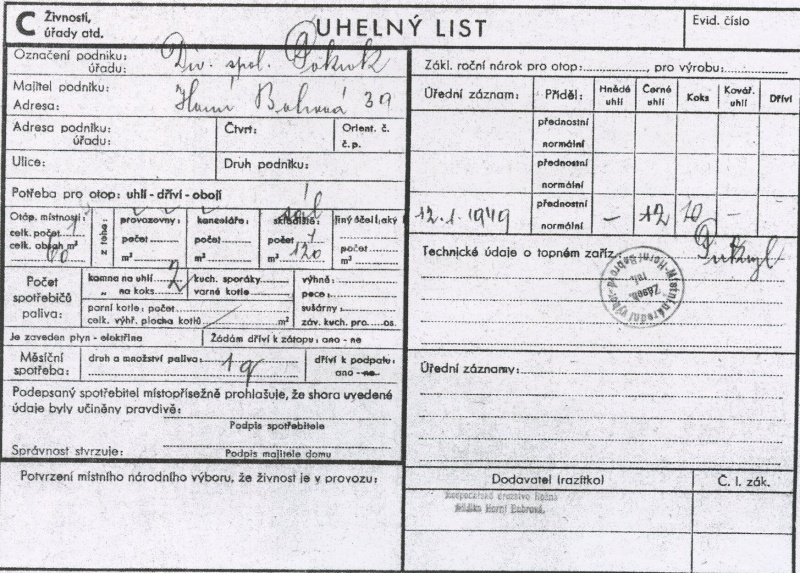 C Živnosti, úřady atd.
UHELNÝ LIST
Evid. číslo
Označení podniku: úřadu: Div. spol. Pokrok
Majitel podniku:
Adresa: Horní Bobrová 39
Adresa podniku: úřadu:
Čtvrť:
Orient. č. č. p.
Ulice:
Druh podniku:
Potřeba pro otop: uhlí - dříví - obojí
Otáp. místností: celk. počet 1
celk. obsah m³
z toho:
provozovny: počet m³
kanceláře: počet m³
skladiště: sál počet 1 m³ 120
jiný účel (jaký): počet m³
Počet spotřebičů paliva:
kamna na uhlí
„ na koks 2
kuch. sporáky
varné kotle
výhně:
pece:
sušárny:
záv. kuch. pro os.
parní kotle: počet
celk. výhř. plocha kotlů m²
Je zaveden plyn - elektřina
Žádám dříví k zátopu: ano - ne
Měsíční spotřeba:
druh a množství paliva: 1q
dříví k podpalu: ano - ne
Podepsaný spotřebitel místopřísežně prohlašuje, že shora uvedené
údaje byly učiněny pravdivě:
Podpis spotřebitele
Správnost stvrzuje:
Podpis majitele domu
Potvrzení místního národního výboru, že živnost je v provozu:
Zákl. roční nárok pro otop: , pro výrobu:
Úřední záznam:
Příděl:
Hnědé uhlí
Černé uhlí
Koks
Kovář. uhlí
Dříví
přednostní
normální
přednostní
normální
12.1.1949
přednostní
normální
– 12 10 –
Technické údaje o topném zaříz.
Místní národní výbor Horní Bobrová
Úřední záznamy:
Dodavatel (razítko)
Č. l. zák.
Hospodářské družstvo
Horní Bobrová.